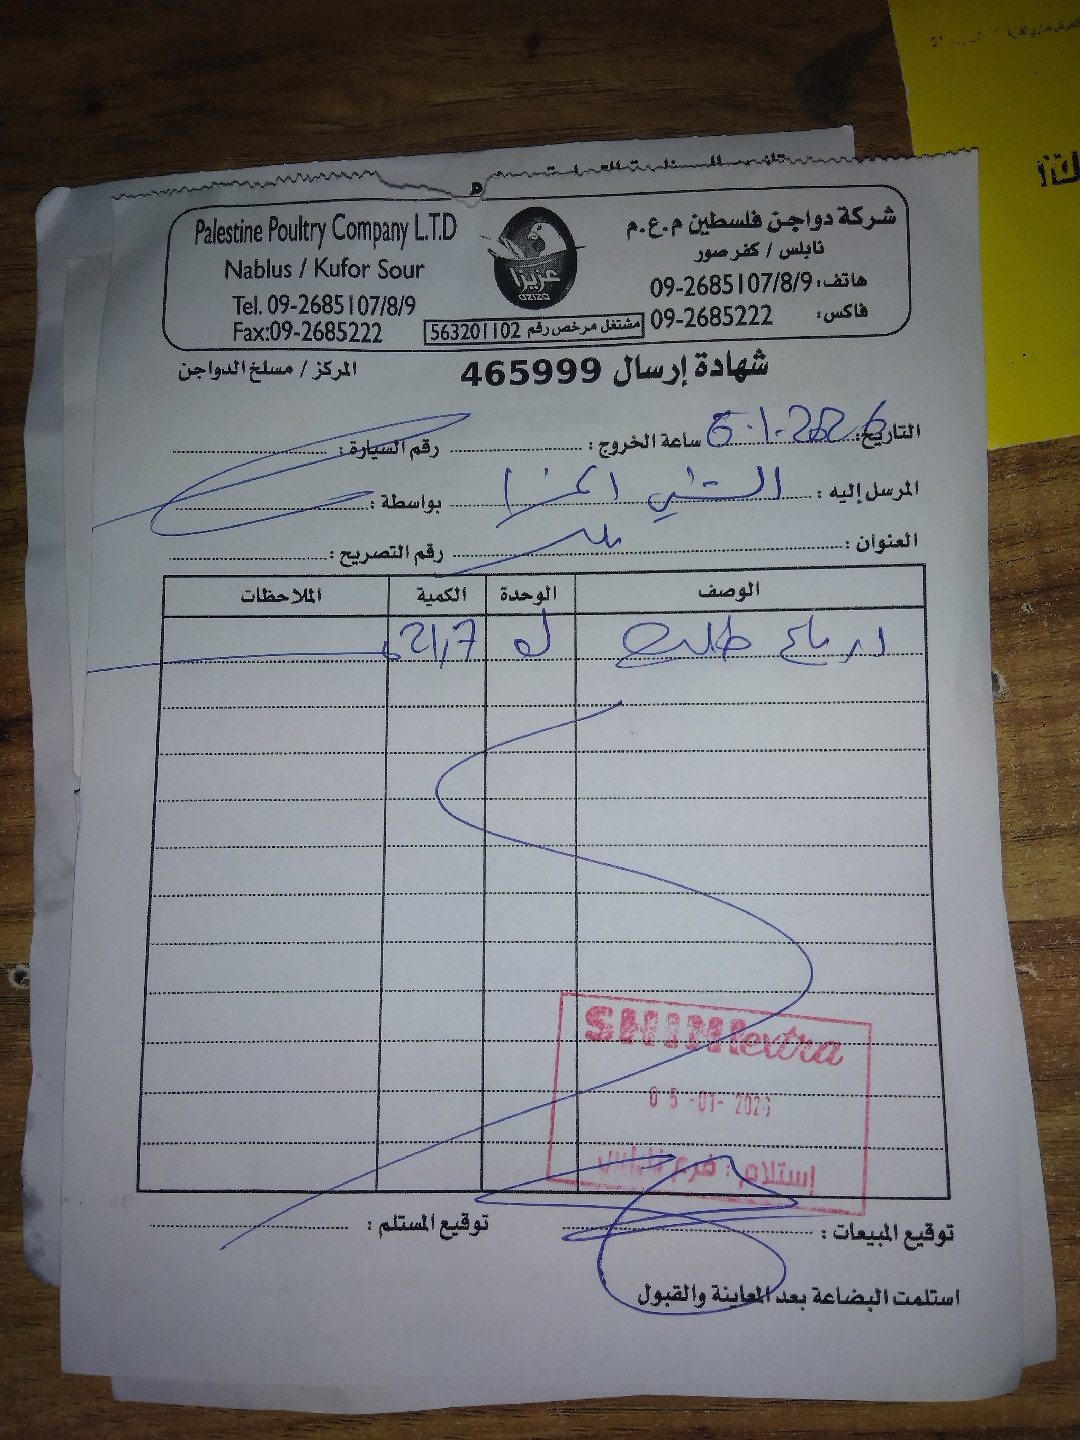 شركة دواجن فلسطين م.ع.م
نابلس / كفر صور
هاتف: 09-2685107/8/9
فاكس: 09-2685222
Palestine Poultry Company L.T.D
Nablus / Kufor Sour
Tel. 09-2685107/8/9
Fax:09-2685222
عزيزا
aziza
مشتغل مرخص رقم 563201102
شهادة إرسال 465999
المركز / مسلخ الدواجن
التاريخ: 5.1.2026 ساعة الخروج: رقم السيارة:
المرسل إليه: الشني بواسطة:
العنوان: رقم التصريح:
الوصف الوحدة الكمية الملاحظات
طلب ك 21,7
SHINI extra
05 -01- 2026
إستلام: فرع نابلس
توقيع المبيعات: توقيع المستلم:
استلمت البضاعة بعد المعاينة والقبول